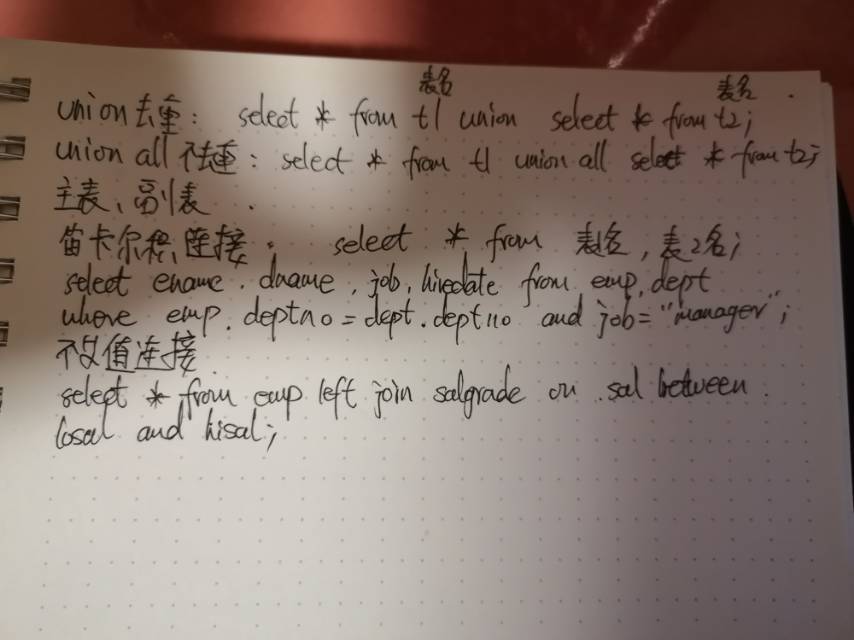 表名 表名
union去重: select * from t1 union select * from t2;
union all 不去重: select * from t1 union all select * from t2;
主表、副表
笛卡尔积连接: select * from 表1名, 表2名;
select ename, dname, job, hiredate from emp, dept
where emp.deptno = dept.deptno and job="manager";
值连接
select * from emp left join salgrade on sal between
losal and hisal;